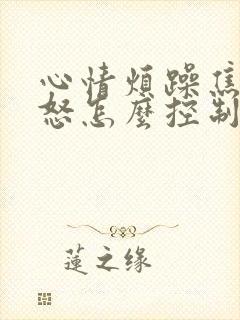 心情煩躁焦
怒怎麼控制
蓮之缘